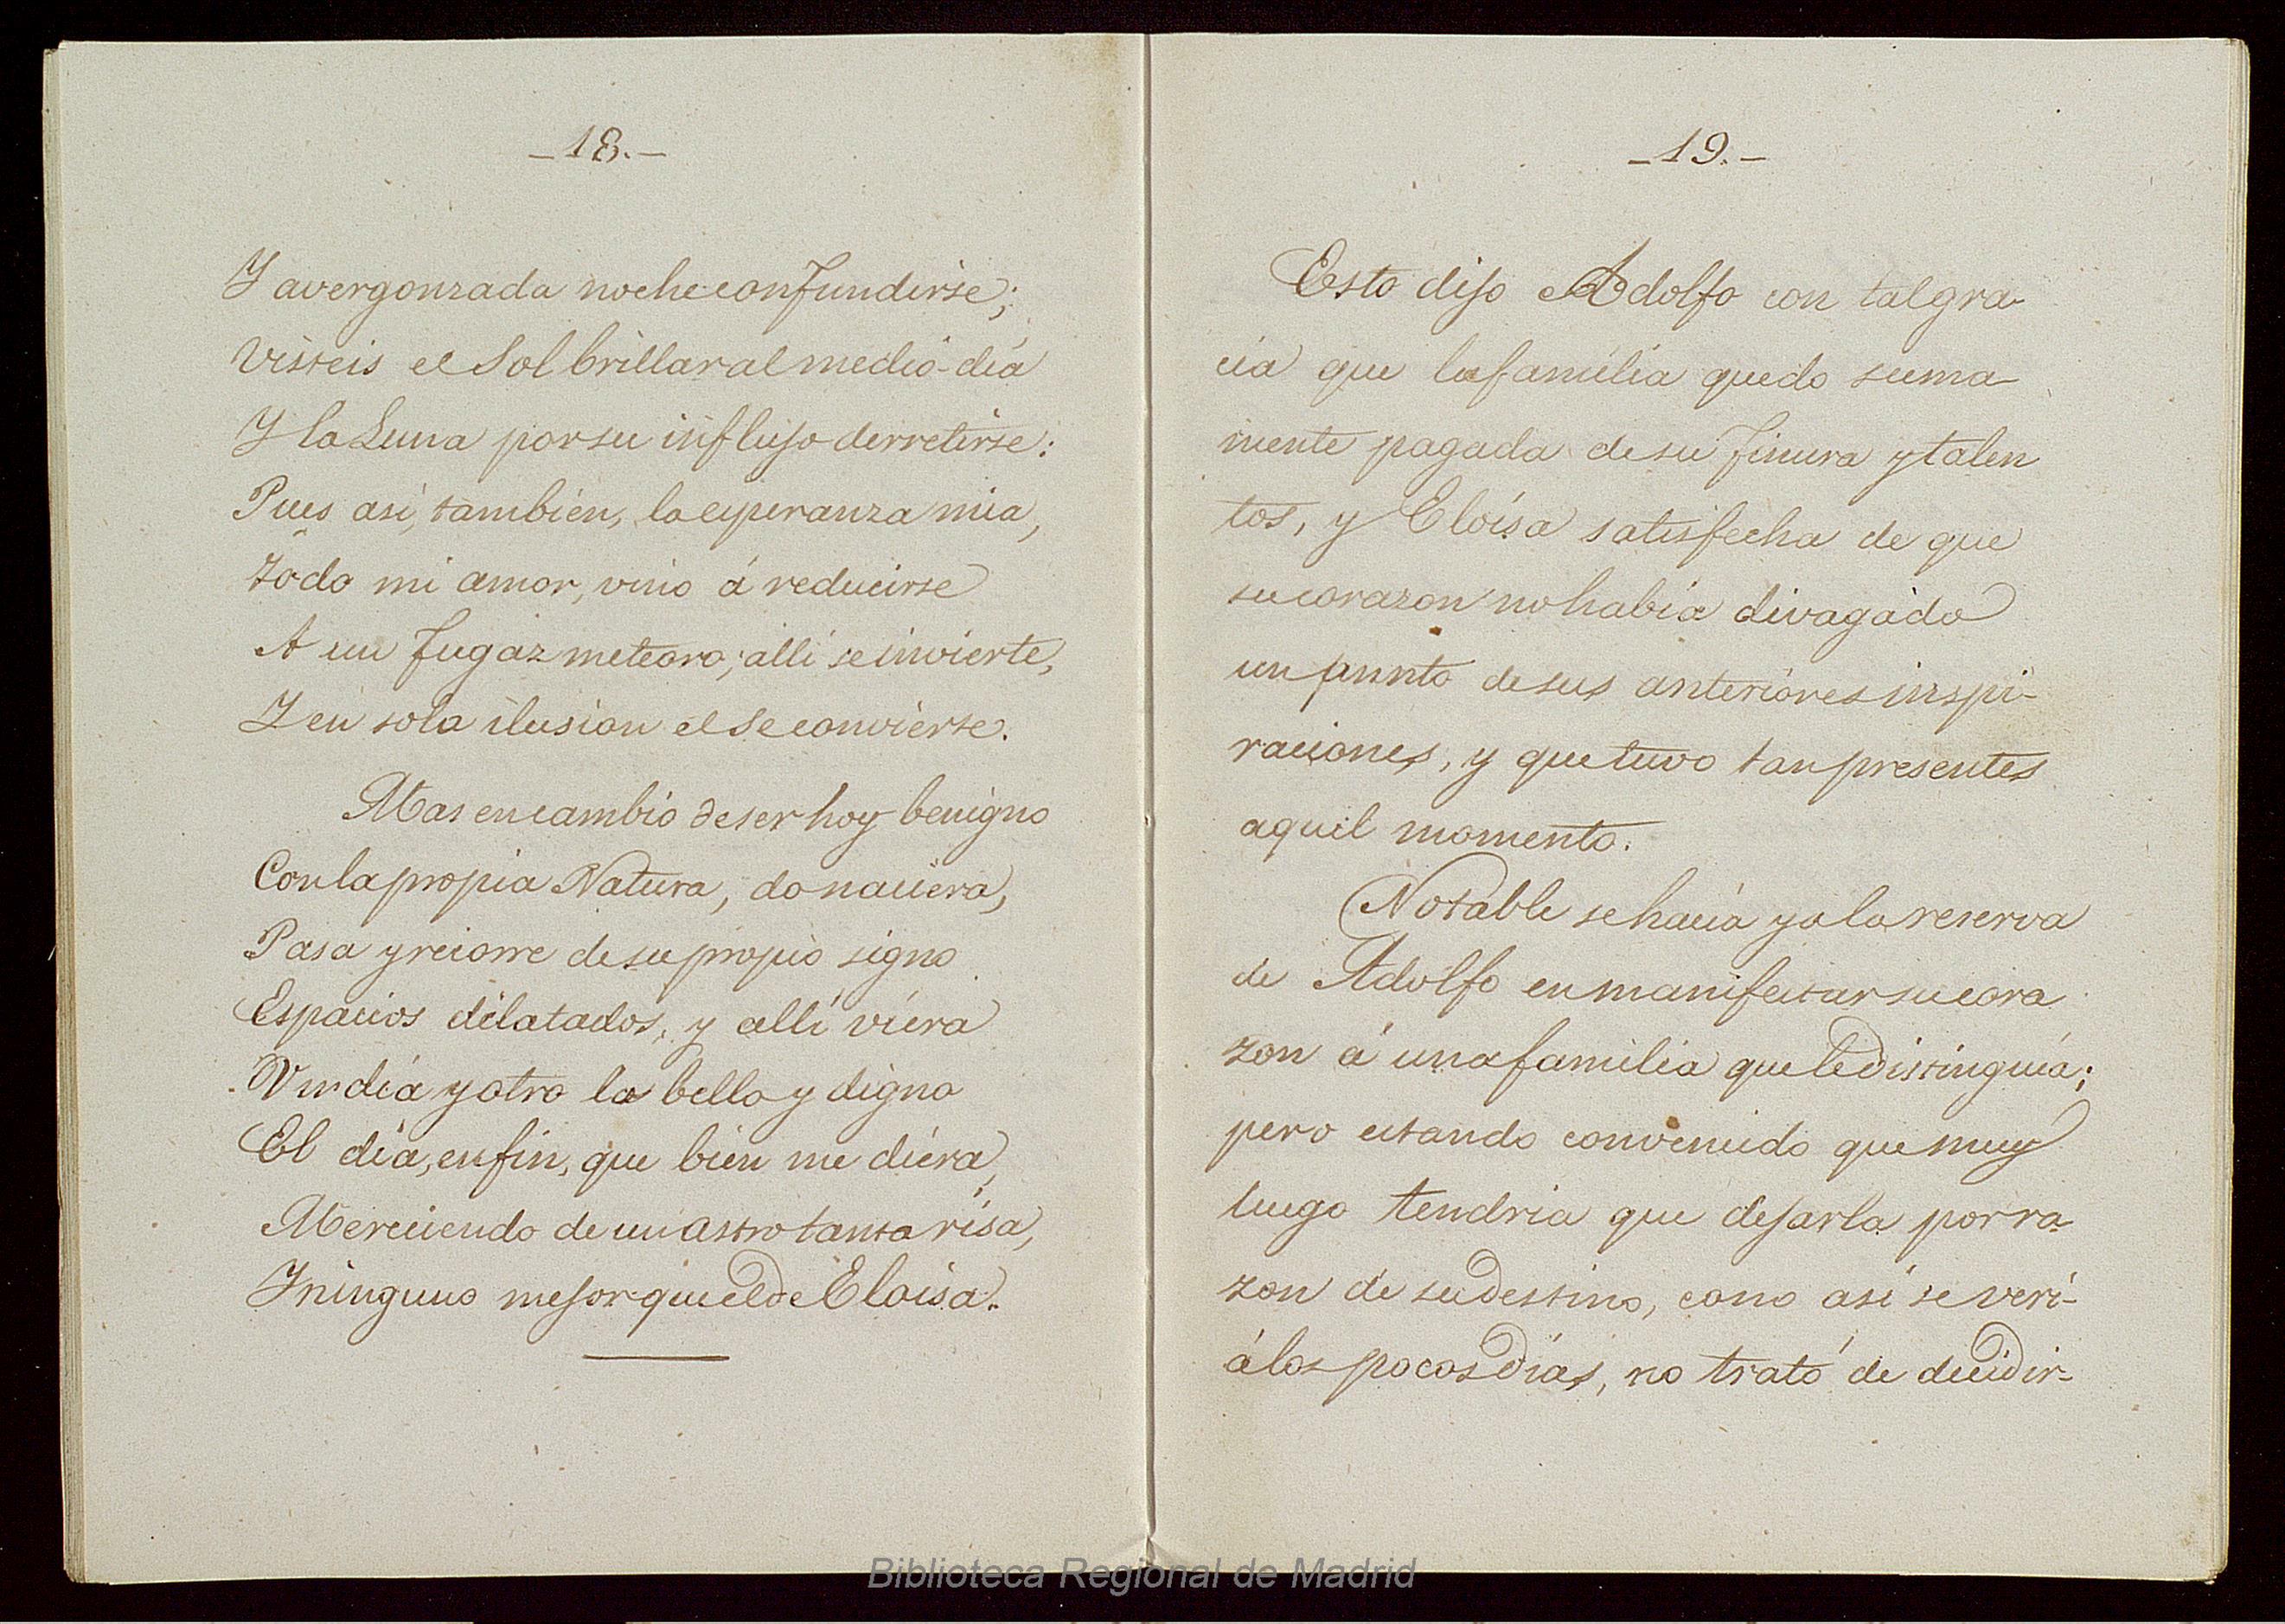 _18._
Y avergonzada noche confundirse;
Visteis el Sol brillar al medio-dia
Y la Luna por su influjo derretirse:
Pues así, tambien, la esperanza mia,
Todo mi amor, vino á reducirse
A un fugaz meteoro; allí se invierte,
Y en sola ilusion el se convierte.
Mas en cambio de ser hoy benigno
Con la propia Natura, do naciera,
Pasa y recorre de su propio signo
Espacios dilatados, y allí viera
Un dia y otro lo bello y digno
El dia, en fin, que bien me diera,
Mereciendo de un astro tanta risa,
Y ninguno mejor que el de Eloisa.
_19._
Esto dijo Adolfo con tal gra-
cia que la familia quedo suma-
mente pagada de su finura y talen
tos, y Eloisa satisfecha de que
su corazon no habia divagado
un punto de sus anteriores inspi-
raciones, y que tuvo tan presentes
aquel momento.
Notable se hacia ya la reserva
de Adolfo en manifestar su cora
zon á una familia que le distinguia;
pero estando convenido que muy
luego tendria que dejarla por ra-
zon de su destino, como así se veri-
á los pocos dias, no trató de decidir-
Biblioteca Regional de Madrid